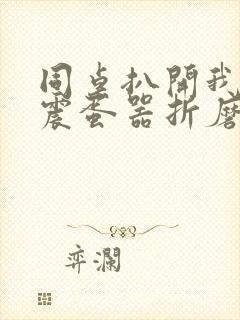 同桌扒開我
震蛋器折磨
弈瀾